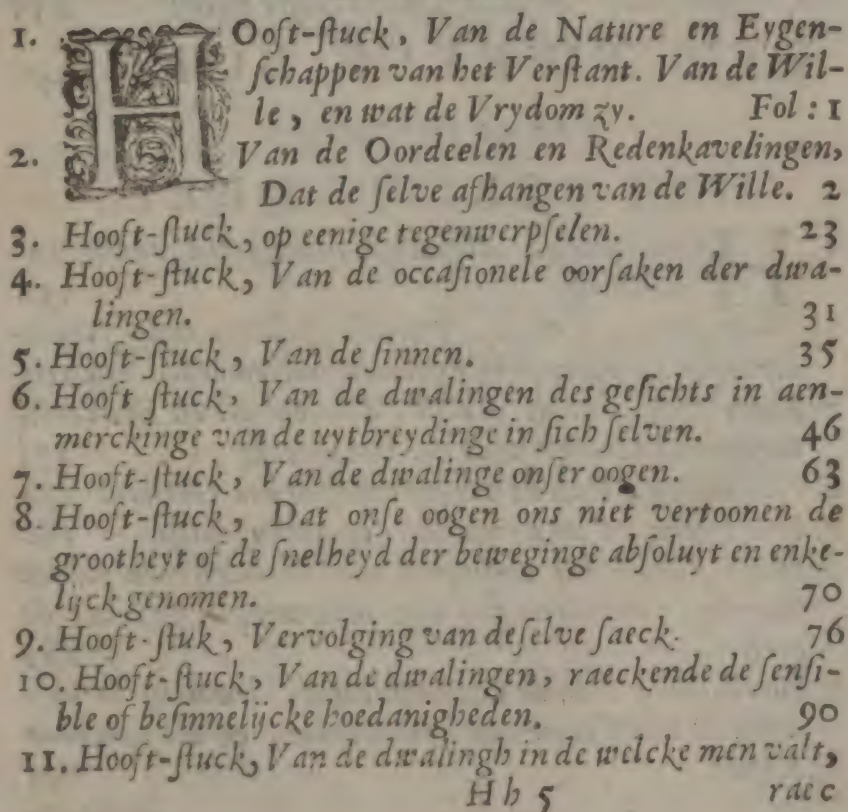 1. HOoft-ſtuck, Van de Nature en Eygen-
ſchappen van het Verſtant. Van de Wil-
le, en wat de Vrydom zy. Fol: 1
2. Van de Oordeelen en Redenkavelingen,
Dat de ſelve afhangen van de Wille. 2
3. Hooft-ſtuck, op eenige tegenwerpſelen. 23
4. Hooft-ſtuck, Van de occaſionele oorſaken der dwa-
lingen. 31
5. Hooft-ſtuck, Van de ſinnen. 35
6. Hooft ſtuck, Van de dwalingen des geſichts in aen-
merckinge van de uytbreydinge in ſich ſelven. 46
7. Hooft-ſtuck, Van de dwalinge onſer oogen. 63
8. Hooft-ſtuck, Dat onſe oogen ons niet vertoonen de
grootheyt of de ſnelheyd der beweginge abſoluyt en enke-
lijck genomen. 70
9. Hooft-ſtuk, Vervolging van deſelve ſaeck. 76
10. Hooft-ſtuck, Van de dwalingen, raeckende de ſenſi-
ble of beſinnelijcke hoedanigheden. 90
11. Hooft-ſtuck, Van de dwalingh in de welcke men valt,
Hh 5 raec